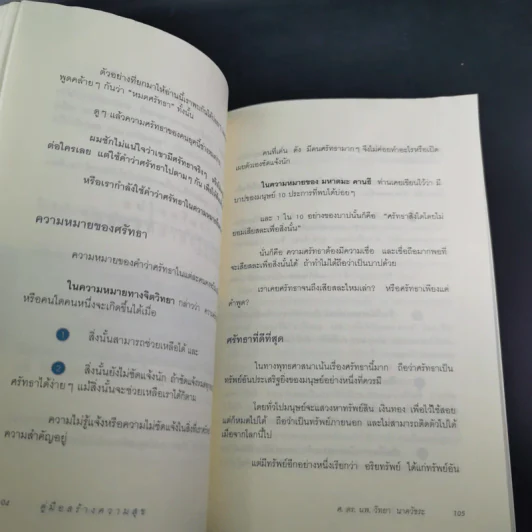 ตัวอย่างที่ยกมาให้อ่านนี้เราพบกันได้
พูดคล้ายๆ กันว่า "หมดศรัทธา" ทั้งนั้น
ดูๆ แล้วความศรัทธาของคนยุคนี้ช่าง
ผมชักไม่แน่ใจว่าเขามีศรัทธาจริงๆ
ต่อใครเลย แต่ใช้คำว่าศรัทธาไปตามๆ กัน
หรือเรากำลังใช้คำว่าศรัทธาในความหมาย
ความหมายของศรัทธา
ความหมายของคำว่าศรัทธาในแต่ละคน
ในความหมายทางจิตวิทยา กล่าวว่า
หรือคนใดคนหนึ่งจะเกิดขึ้นได้เมื่อ
1 สิ่งนั้นสามารถช่วยเหลือได้ และ
2 สิ่งนั้นยังไม่ชัดแจ้งนัก ถ้าชัดเจน
ศรัทธาได้ง่ายๆ แม้สิ่งนั้นจะช่วยเหลือเราได้ก็ตาม
ความไม่รู้แจ้งหรือความไม่ชัดแจ้งในสิ่งที่เรา
ความสำคัญอยู่
คู่มือสร้างความสุข
คนที่เด่น ดัง มีคนศรัทธามากๆ จึงไม่ค่อยทำอะไรหรือเปิด
เผยตัวเองชัดแจ้งนัก
ในความหมายของ มหาตมะ คานธี ท่านเคยเขียนไว้ว่า มี
บาปของมนุษย์ 10 ประการที่พบได้บ่อยๆ
และ 1 ใน 10 อย่างของบาปนั้นก็คือ "ศรัทธาสิ่งใดโดยไม่
ยอมเสียสละเพื่อสิ่งนั้น"
นั่นก็คือ ความศรัทธาต้องมีความเชื่อ และเชื่อถือมากพอที่
จะเสียสละเพื่อสิ่งนั้นได้ ถ้าทำไม่ได้ถือว่าเป็นบาปด้วย
เราเคยศรัทธาจนถึงเสียสละไหมเล่า? หรือศรัทธาเพียงแค่
คำพูด?
ศรัทธาที่ดีที่สุด
ในทางพุทธศาสนาเน้นเรื่องศรัทธานี้มาก ถือว่าศรัทธาเป็น
ทรัพย์อันประเสริฐยิ่งของมนุษย์อย่างหนึ่งที่ควรมี
โดยทั่วไปมนุษย์จะแสวงหาทรัพย์สิน เงินทอง เพื่อไว้ใช้สอย
แต่ก็หมดไปได้ ถือว่าเป็นทรัพย์ภายนอก และไม่สามารถติดตัวไปได้
เมื่อจากโลกนี้ไป
แต่มีทรัพย์อีกอย่างหนึ่งเรียกว่า อริยทรัพย์ ได้แก่ทรัพย์อัน
ศ. ดร. นพ. วิทยา นาควัชระ 105